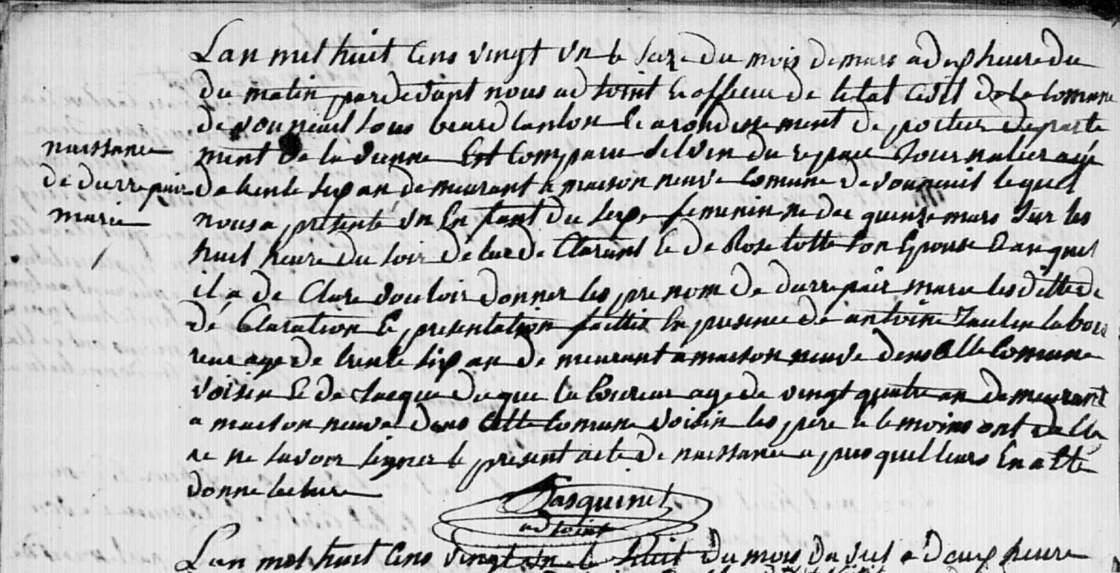 Lan mil huit cens vingt un le seze du mois de mars a dix heure du
du matin par devant nous adjoint et officier de letat civil de la comune
de vouneuil sous biard canton et arondissement de poitier departe
naissance
ment de la vienne est comparu silvin durepair journalier agé
de durrepair
de trente six an demeurant a maison neuve comune de vouneuil lequel
marie
nous a présenté un enfant du sexe feminin né de quinze mars sur les
huit heure du soir de lui de clarant et de Rose totte son epouse et auquel
il a de clare vouloir donner les prenom de durrepair marie les ditte de
de claration et presentation faittes en presence de antoine laboù
reur age de trente six an de meurant a maison neuve dans cette comune
voisin et de Jacque laboureur age de vingt quatre an demeurant
a maison neuve dans cette comune voisin les père et temoins ont de cla
re ne savoir signer le présent acte de naissance a pres quil leurs en a été
donne lecture
Pasquinet
adjoint
Lan mil huit cens vingt un le huit du mois d a deux heure